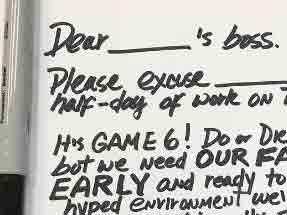 Dear ________'s boss.
Please, excuse ________
half-day of work on
It's GAME 6! Do or Die
but we need OUR
EARLY and ready to
hyped environment